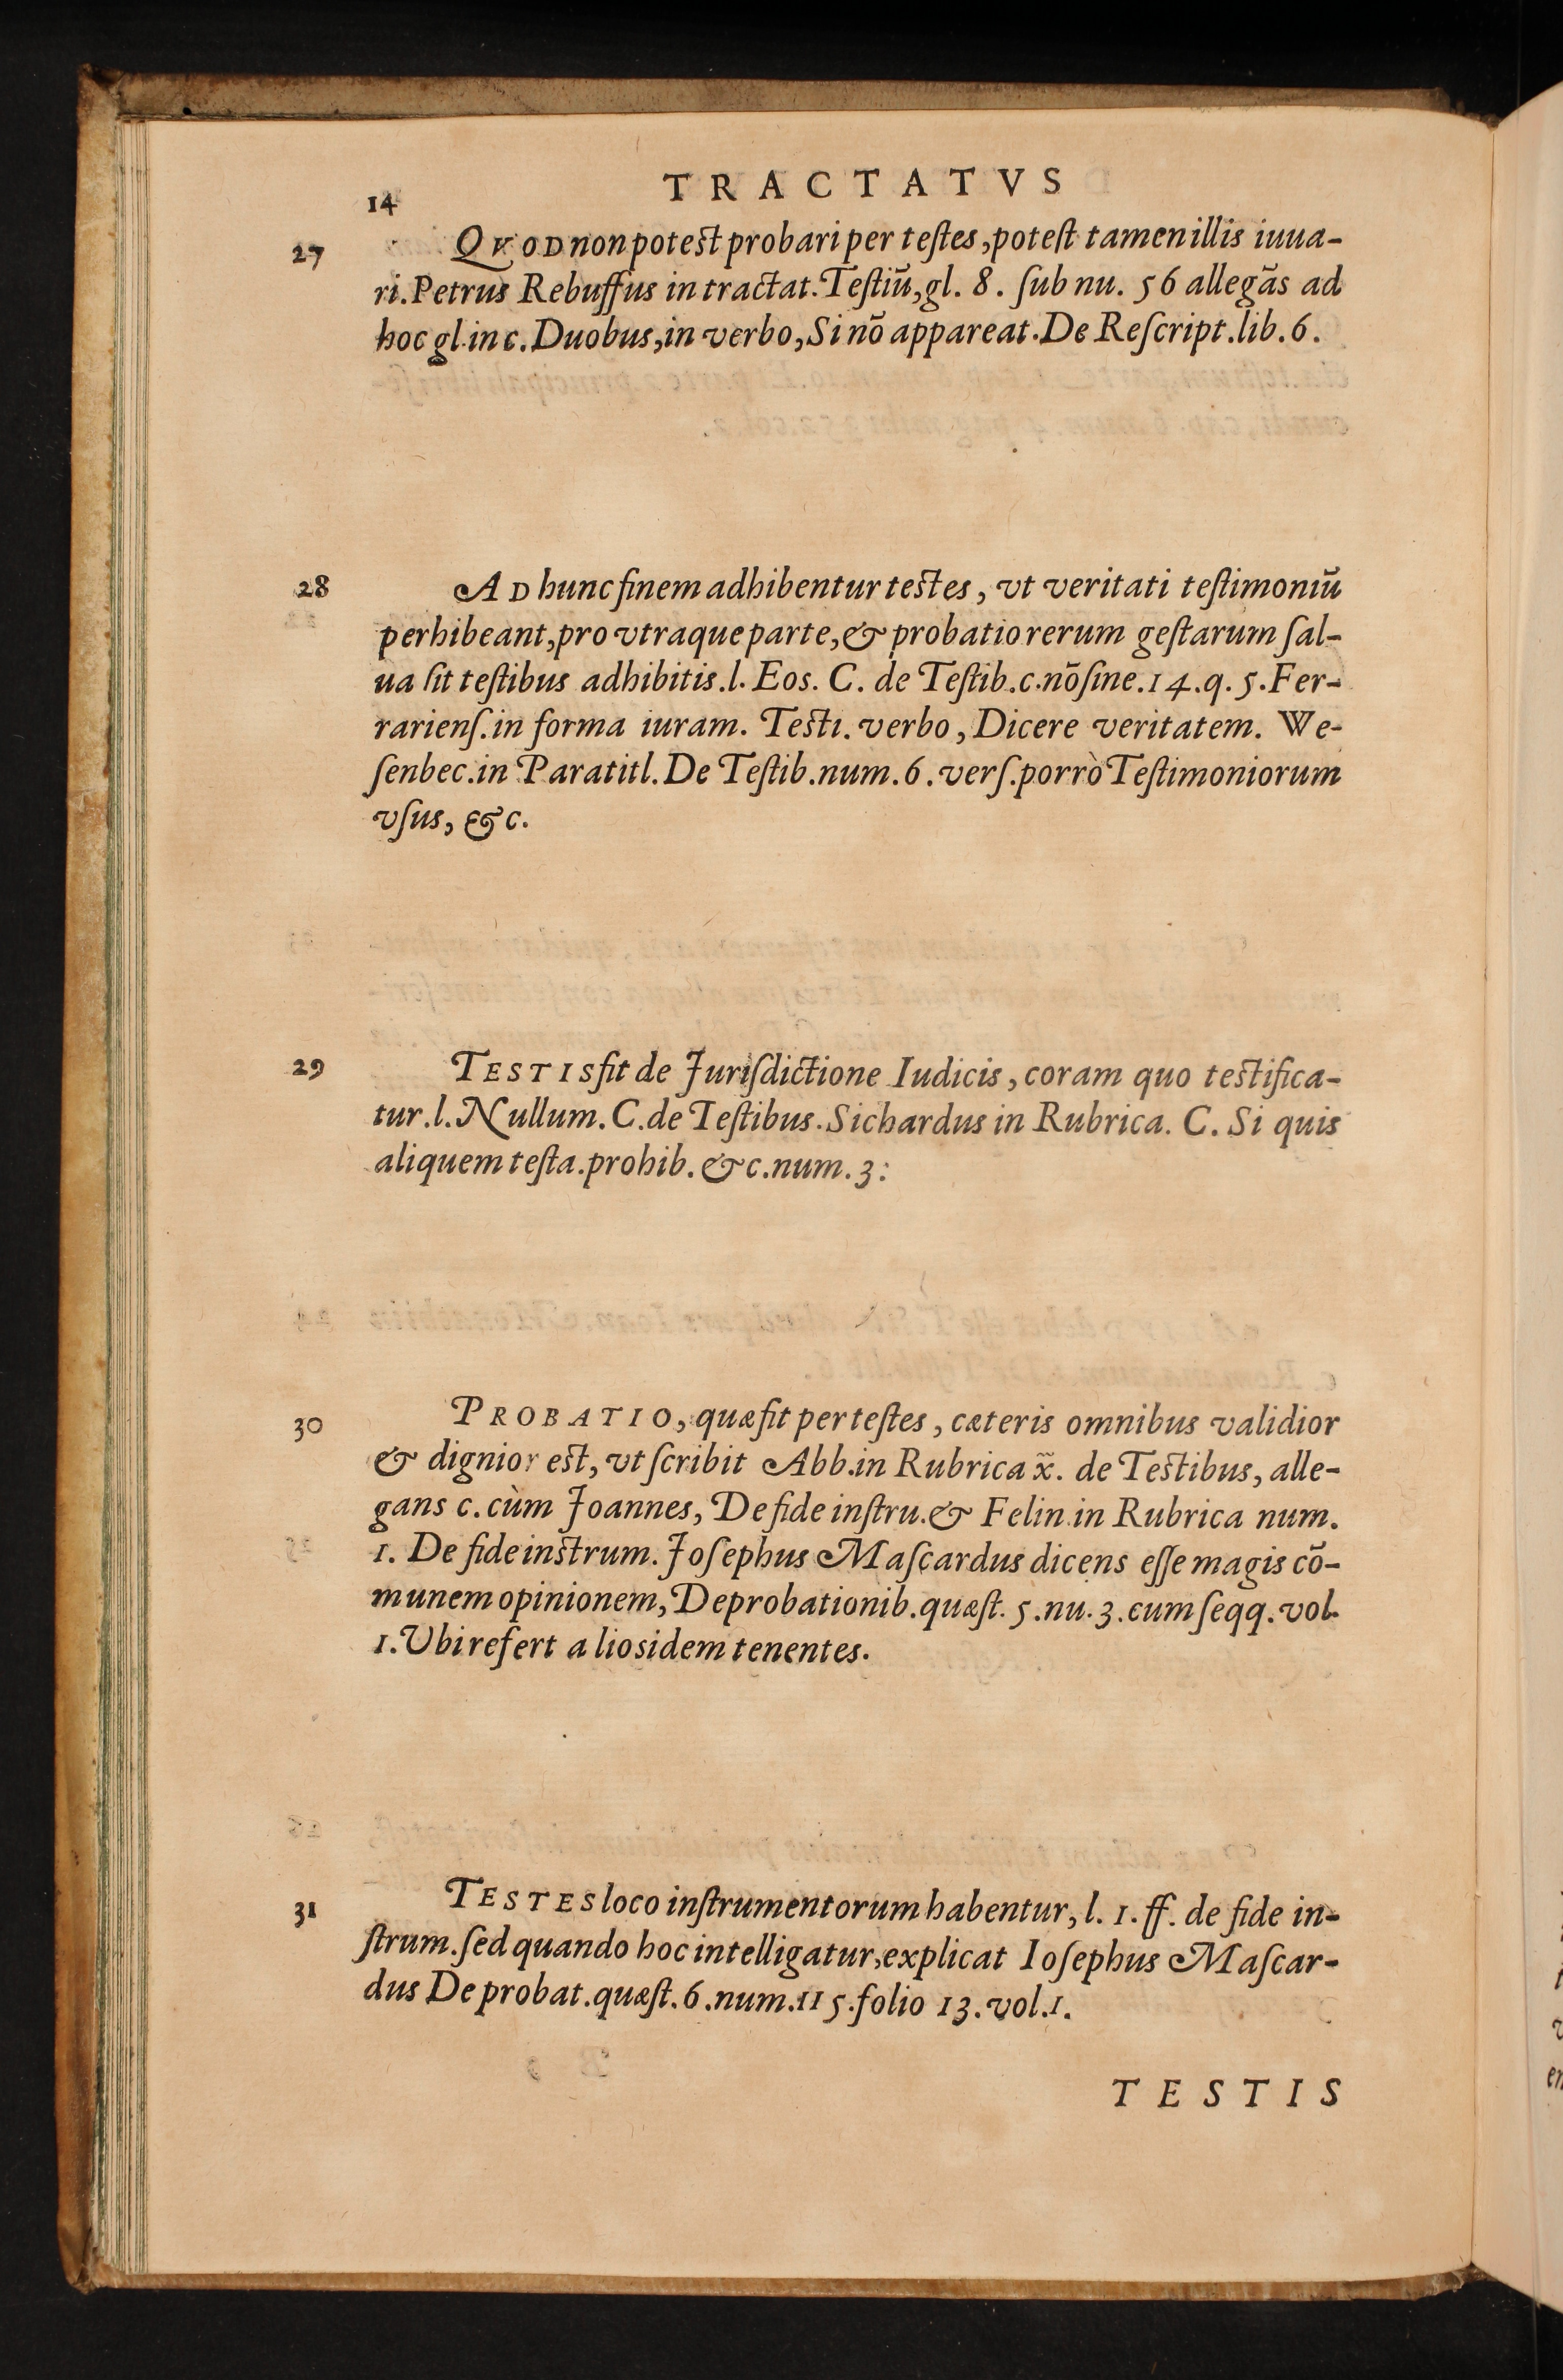 14 TRACTATVS
27 QVOD non poteſt probari per teſtes, poteſt tamen illis iuua-
ri. Petrus Rebuffus in tractat. Teſtiū, gl. 8. ſub nu. 56 allegãs ad
hoc gl. in c. Duobus, in verbo, Si nõ appareat. De Reſcript. lib. 6.
28 AD hunc finem adhibentur teſtes, vt veritati teſtimoniū
perhibeant, pro vtraque parte, & probatio rerum geſtarum ſal-
ua ſit teſtibus adhibitis. l. Eos. C. de Teſtib. c. nõ ſine. 14. q. 5. Fer-
rarienſ. in forma iuram. Teſti. verbo, Dicere veritatem. We-
ſenbec. in Paratitl. De Teſtib. num. 6. verſ. porrò Teſtimoniorum
vſus, &c.
29 TESTIS fit de Juriſdictione Iudicis, coram quo teſtifica-
tur. l. Nullum. C. de Teſtibus. Sichardus in Rubrica. C. Si quis
aliquem teſta. prohib. &c. num. 3:
30 PROBATIO, quæ fit per teſtes, cæteris omnibus validior
& dignior eſt, vt ſcribit Abb. in Rubrica x̃. de Teſtibus, alle-
gans c. cùm Joannes, De fide inſtru. & Felin. in Rubrica num.
1. De fide inſtrum. Joſephus Maſcardus dicens eſſe magis cõ-
munem opinionem, De probationib. quæſt. 5. nu. 3. cum ſeqq. vol.
1. Ubi refert alios idem tenentes.
31 TESTES loco inſtrumentorum habentur, l. 1. ff. de fide in-
ſtrum. ſed quando hoc intelligatur, explicat Ioſephus Maſcar-
dus De probat. quæſt. 6. num. 115. folio 13. vol. 1.
TESTIS